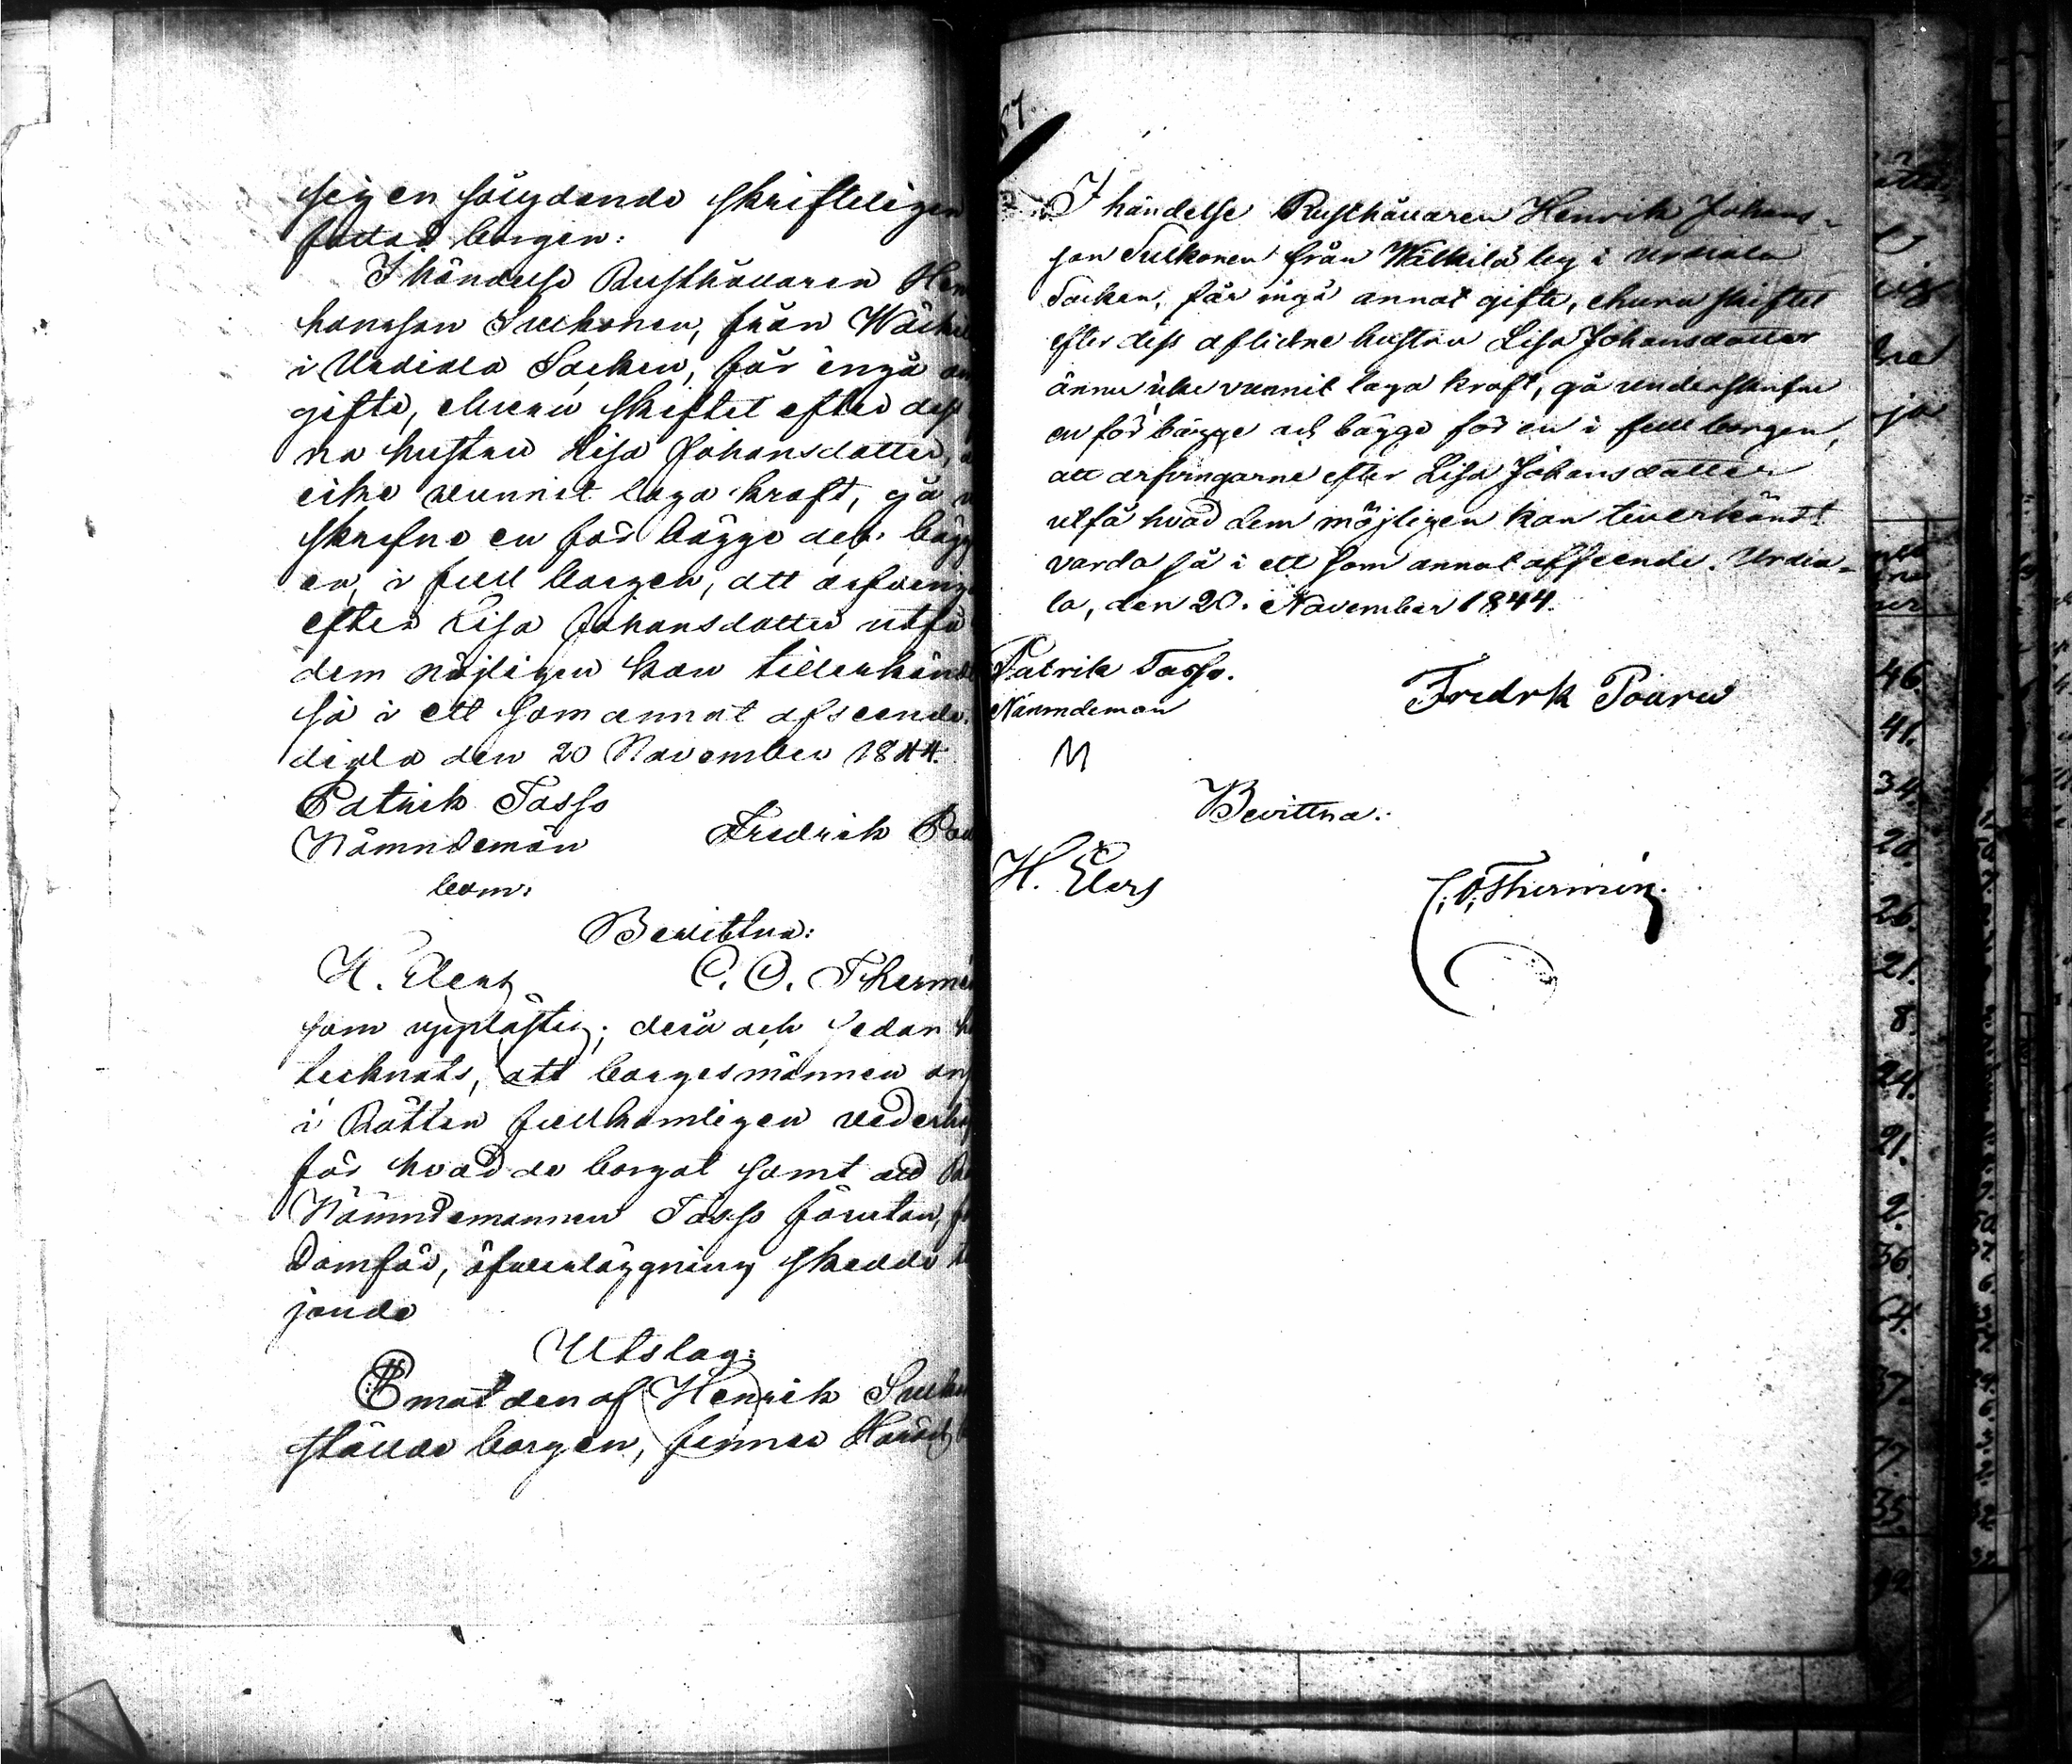 sig en sålydande skrifteligen
fattad borgen:
I händelse Rusthållaren Hen
hansson Sulkonen, från Wälki
i Urdiala Socken, får ingå an
gifte, ehuru skiftet efter dess
na hustru Lisa Johansdotter,
icke vunnit laga kraft, gå
skrefne en för bägge och bägg
en, i full borgen, att arfving
efter Lisa Johansdotter utfå
dem möjligen kan tillerkänd
så i ett som annat afseende.
diala den 20 November 1844.
Patrik Tasso
Nämndeman Fredrik Pau
bom:
Bevittna:
H. Elers C. O. Thermén
som upplästes; derå och sedan
tecknats, att borgesmännen an
i Rätten fullkomligen vederhä
för hvad de borgat samt
Nämndemannen Tasso förutan,
Domför, öfverläggning skedde
jande
Utslag:
Emot den af Henrik Sulko
ställde borgen, finner Härads
87.
I händelse Rusthållaren Henrik Johans-
son Sulkonen från Wälkilä by i Urdiala
Socken, får ingå annat gifte, ehuru skiftet
efter dess aflidne hustru Lisa Johansdotter
ännu icke vunnit laga kraft, gå underskrefne
en för bägge och bägge för en i full borgen,
att arfvingarne efter Lisa Johansdotter
utfå hvad dem möjligen kan tillerkändt
varda så i ett som annat afseende. Urdia-
la, den 20. November 1844.
Patrik Tasso. Fredrk Poaru
Nämndeman
M
Bevittna:
H. Elers C. O. Thermén.
46.
41.
34.
20.
26.
21.
8.
24.
21.
2.
36.
37.
77.
35.